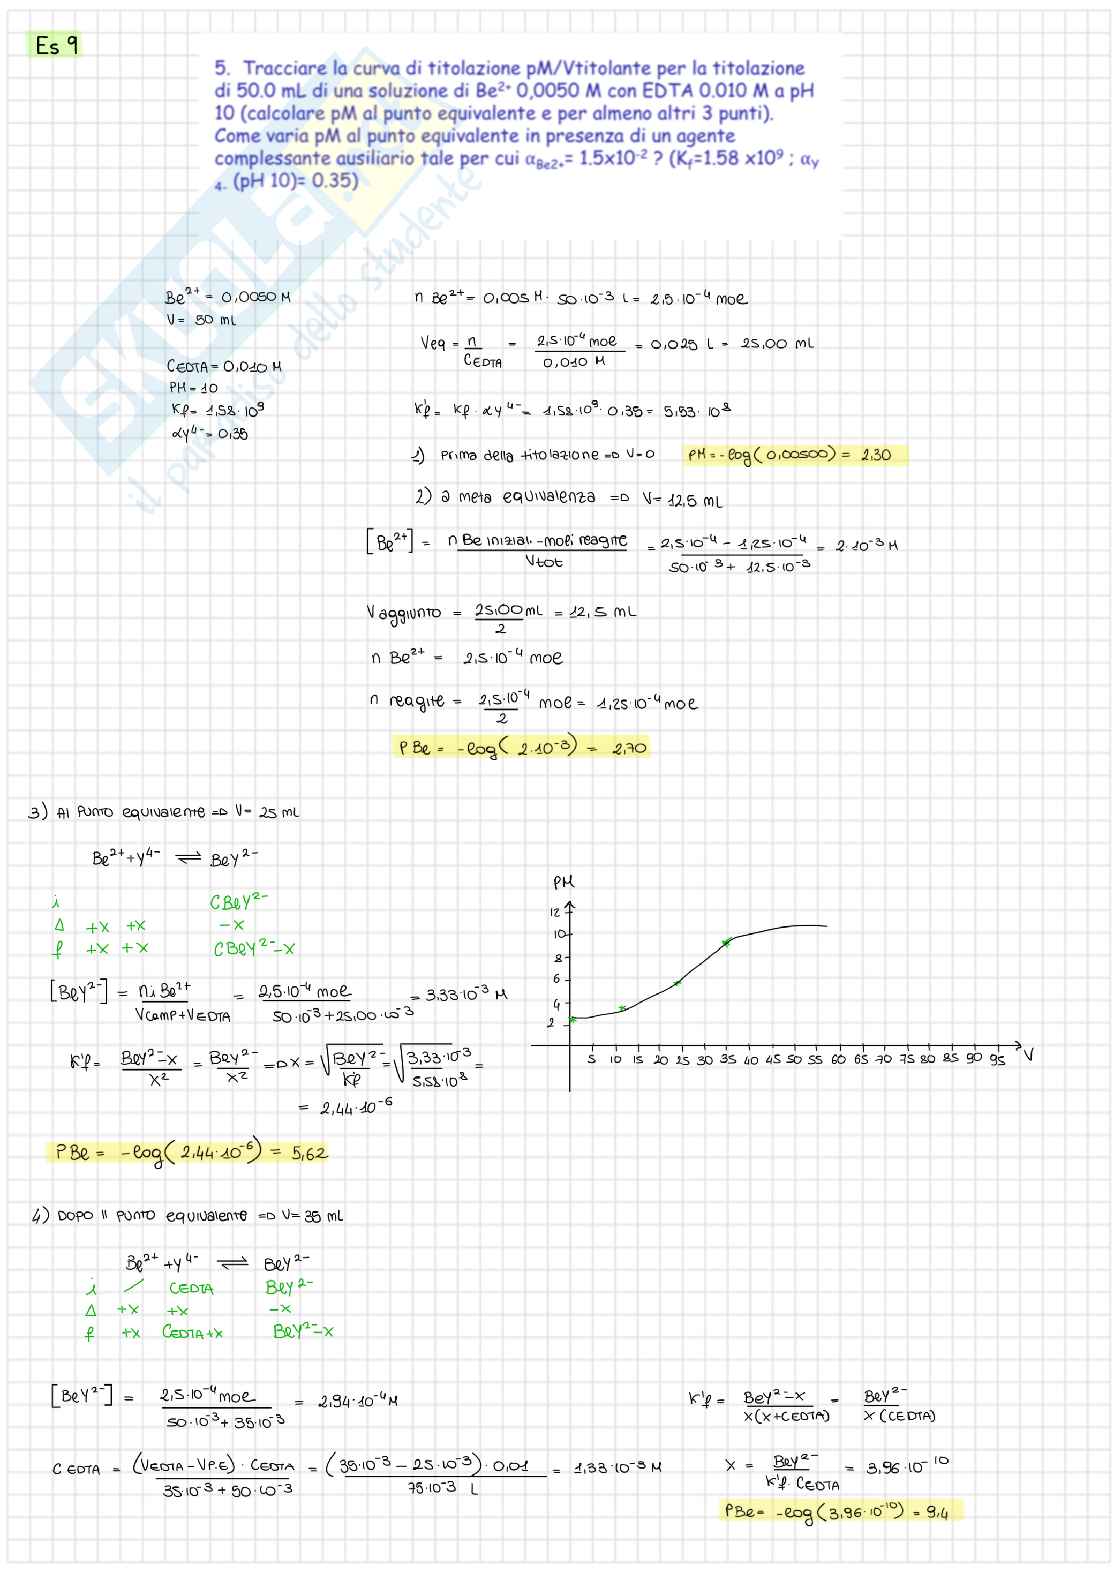 Es 9
5. Tracciare la curva di titolazione pM/Vtitolante per la titolazione
di 50.0 mL di una soluzione di Be²⁺ 0,0050 M con EDTA 0.010 M a pH
10 (calcolare pM al punto equivalente e per almeno altri 3 punti).
Come varia pM al punto equivalente in presenza di un agente
complessante ausiliario tale per cui α_Be2+= 1.5x10⁻² ? (K_f=1.58 x10⁹ ; α_Y
4- (pH 10)= 0.35)
SKUOLA.net
il paradiso dello studente
Be²⁺ = 0,0050 M
V = 50 mL
CEDTA = 0,010 M
PH = 10
Kf = 1,58 · 10⁹
αY⁴⁻ = 0,35
n Be²⁺ = 0,005 M · 50·10⁻³ L = 2,5·10⁻⁴ moe
Veq = n / CEDTA = 2,5·10⁻⁴ moe / 0,010 M = 0,025 L = 25,00 mL
K'f = Kf · αY⁴⁻ = 1,58·10⁹ · 0,35 = 5,53 · 10⁸
1) Prima della titolazione => V=0 PM = -log(0,00500) = 2,30
2) a metà equivalenza => V = 12,5 mL
[Be²⁺] = n Be iniziali - moli reagite / Vtot = 2,5·10⁻⁴ - 1,25·10⁻⁴ / 50·10⁻³ + 12,5·10⁻³ = 2·10⁻³ M
V aggiunto = 25,00 mL / 2 = 12,5 mL
n Be²⁺ = 2,5·10⁻⁴ moe
n reagite = 2,5·10⁻⁴ / 2 moe = 1,25·10⁻⁴ moe
PBe = -log(2·10⁻³) = 2,70
3) Al punto equivalente => V = 25 mL
Be²⁺ + Y⁴⁻ ⇌ BeY²⁻
i CBeY²⁻
Δ +x +x -x
f +x +x CBeY²⁻-x
[BeY²⁻] = ni Be²⁺ / Vcamp + VEDTA = 2,5·10⁻⁴ moe / 50·10⁻³ + 25,00·10⁻³ = 3,33·10⁻³ M
K'f = BeY²⁻-x / x² = BeY²⁻ / x² => x = √(BeY²⁻ / K'f) = √(3,33·10⁻³ / 5,58·10⁸) =
= 2,44·10⁻⁶
PBe = -log(2,44·10⁻⁶) = 5,62
PM
12
10
8
6
4
2
5 10 15 20 25 30 35 40 45 50 55 60 65 70 75 80 85 90 95 V
4) Dopo il punto equivalente => V = 35 mL
Be²⁺ + Y⁴⁻ ⇌ BeY²⁻
i / CEDTA BeY²⁻
Δ +x +x -x
f +x CEDTA+x BeY²⁻-x
[BeY²⁻] = 2,5·10⁻⁴ moe / 50·10⁻³ + 35·10⁻³ = 2,94·10⁻⁴ M
K'f = BeY²⁻-x / x(x+CEDTA) = BeY²⁻ / x(CEDTA)
CEDTA = (VEDTA - VP.E) · CEDTA / 35·10⁻³ + 50·10⁻³ = (35·10⁻³ - 25·10⁻³) · 0,01 / 75·10⁻³ L = 1,33·10⁻³ M
x = BeY²⁻ / K'f · CEDTA = 3,96·10⁻¹⁰
PBe = -log(3,96·10⁻¹⁰) = 9,4